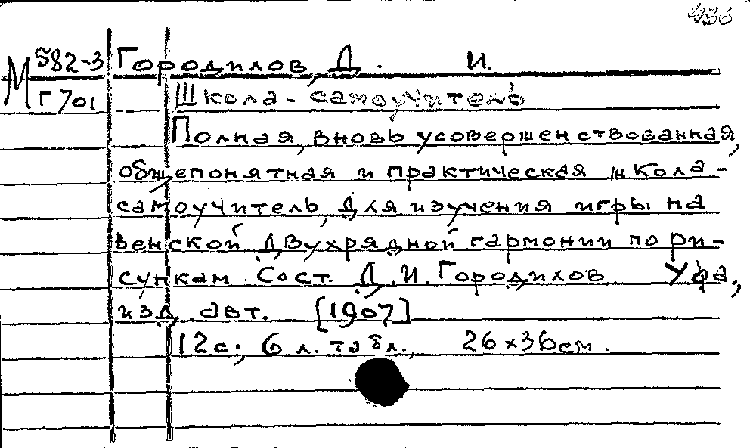 436
М 582-3 Городилов, Д. И.
Г 701 Школа-самоучитель
Полная, вновь усовершенствованная,
общепонятная и практическая школа-
самоучитель, для изучения игры на
венской двухрядной гармонии по ри-
сункам. Сост. Д. И. Городилов. Уфа,
изд. авт. [1907]
12 с., 6 л. табл., 26×36 см.